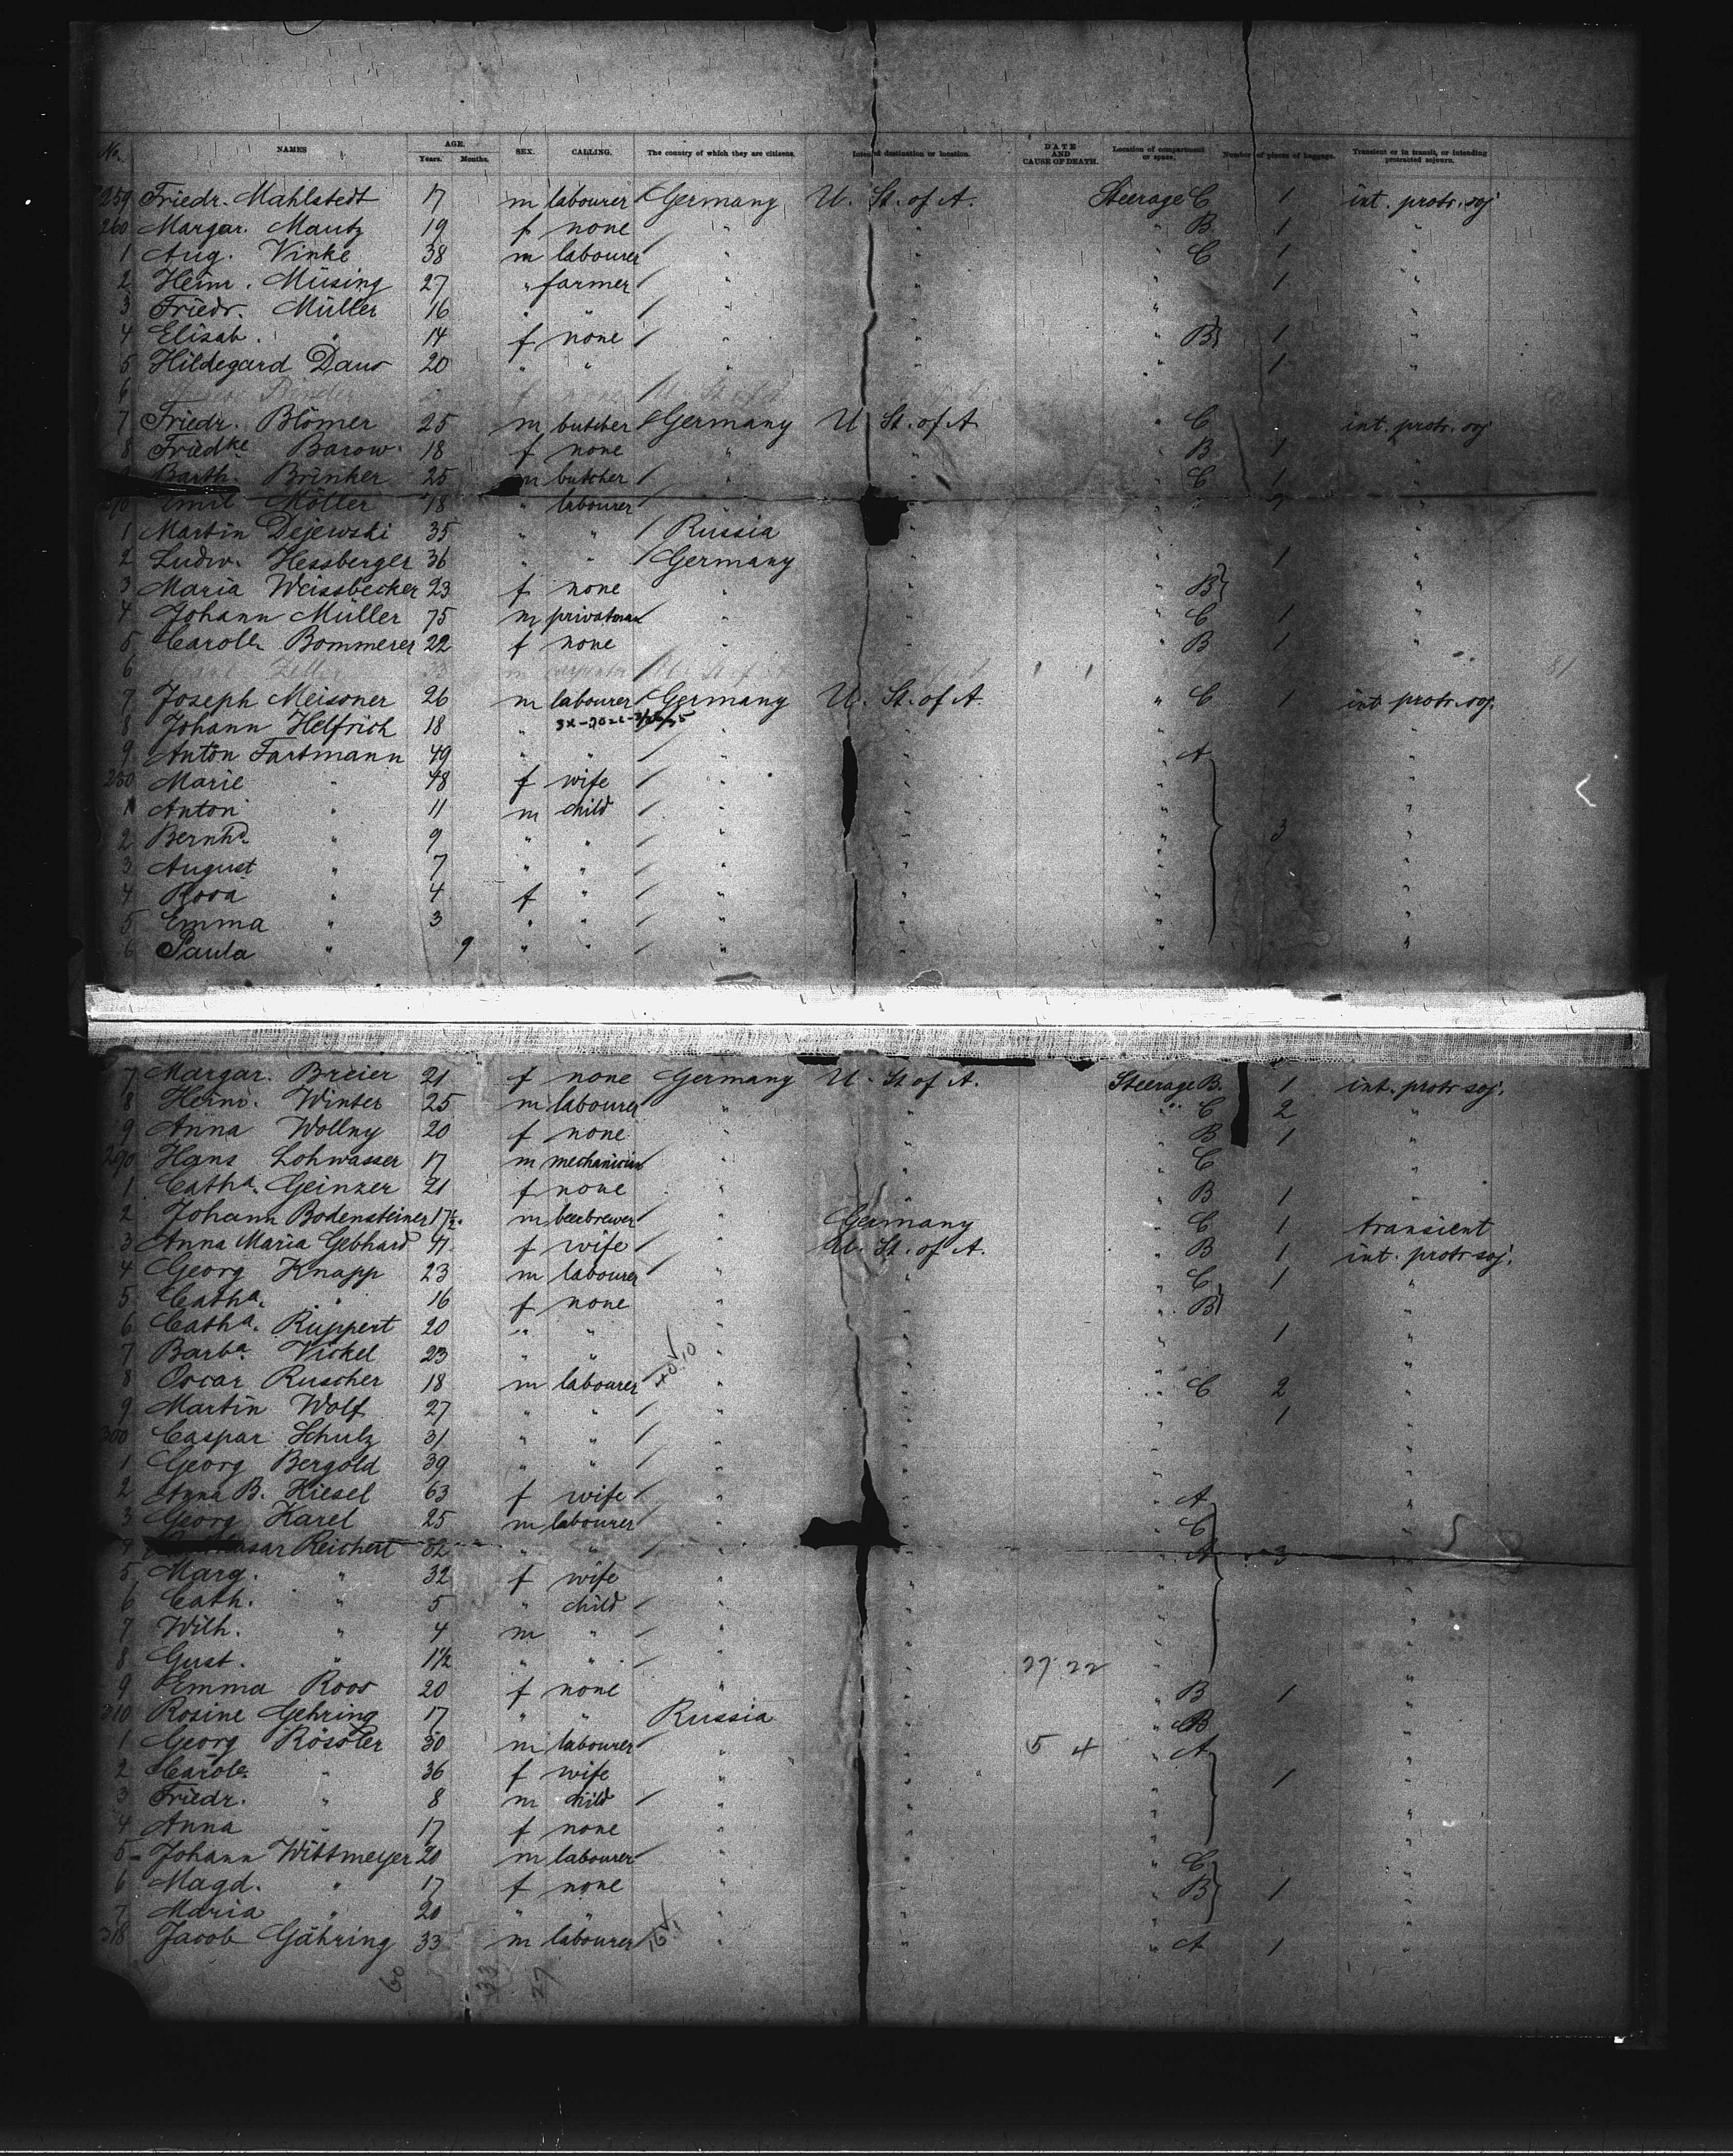 No. NAMES AGE. Years. Months. SEX. CALLING. The country of which they are citizens. Intended destination or location. DATE AND CAUSE OF DEATH. Location of compartment or space. Number of pieces of baggage. Transient or in transit, or intending protracted sojourn.
259 Friedr. Mahlstedt 17 m labourer Germany U. St. of A. Steerage C 1 int. protr. soj
260 Margar. Mautz 19 f none " " " B 1 "
1 Aug. Vinke 38 m labourer " " " C 1 "
2 Heinr. Müsing 27 " farmer " " " 1 "
3 Friedr. Müller 16 " " " " " "
4 Elisab. " 14 f none " " " B 1 "
5 Hildegard Daus 20 " " " " " 1 "
6 f none U. St. of A.
7 Friedr. Blömer 25 m butcher Germany U. St. of A " C int. protr. soj
8 Friedke Barow 18 f none " " " B 1 "
9 Barth. Brinker 25 m butcher " " " C 1 "
270 Emil Möller 18 " labourer " " " "
1 Martin Dejewski 35 " " Russia " " "
2 Ludw. Hessberger 36 " " Germany " " 1 "
3 Maria Weissbecker 23 f none " " " B "
4 Johann Müller 75 m privatman " " " C 1 "
5 Carole Bommerer 22 f none " " " B 1 "
6 Zeller 33 m U. St. of A 81
7 Joseph Meisoner 26 m labourer Germany U. St. of A. " C 1 int protr. soj.
8 Johann Helfrich 18 " " " " "
9 Anton Fartmann 49 " " " " " A "
280 Marie " 48 f wife " " " "
1 Anton " 11 m child " " " "
2 Bernhd " 9 " " " " " 3 "
3 August " 7 " " " " " "
4 Rosa " 4 f " " " " "
5 Emma " 3 " " " " " "
6 Paula " 9 " " " " " "
7 Margar. Breier 21 f none Germany U. St of A. Steerage B. 1 int. protr soj.
8 Heinr. Winter 25 m labourer " " " C 2 "
9 Anna Wollny 20 f none " " " B 1 "
290 Hans Lohwasser 17 m mechanician " " " C "
1 Catha. Geinzer 21 f none " " " B 1 "
2 Johann Bodensteiner 17½ m beerbrewer " Germany " C 1 transient
3 Anna Maria Gebhard 41 f wife " U. St. of A. " B 1 int. protr soj.
4 Georg Knapp 23 m labourer " " " C 1 "
5 Catha. " 16 f none " " " B "
6 Catha. Ruppert 20 " " " " " 1 "
7 Barba. Vickel 23 " " " " " "
8 Oscar Ruscher 18 m labourer " " " C 2 "
9 Martin Wolf 27 " " " " " 1 "
300 Caspar Schulz 31 " " " " " "
1 Georg Bergold 39 " " " " " "
2 Anna B. Kiesel 63 f wife " " " A "
3 Georg Karel 25 m labourer " " " C "
4 Reichert 32 " " " " " A 3 "
5 Marg. " 32 f wife " " " "
6 Cath. " 5 " child " " " "
7 Wilh. " 4 m " " " " "
8 Gust. " 1½ " " " " 27 22 " "
9 Emma Roos 20 f none " " " B 1 "
310 Rosine Gehring 17 " " Russia " " B "
1 Georg Rössler 30 m labourer " " 5 4 " A "
2 Carole. " 36 f wife " " " 1 "
3 Friedr. " 8 m child " " " "
4 Anna " 17 f none " " " "
5 Johann Wittmeyer 20 m labourer " " " C "
6 Magd. " 17 f none " " " B 1 "
7 Maria " 20 " " " " " "
318 Jacob Gähring 33 m labourer " " " A 1 "
60 33 27